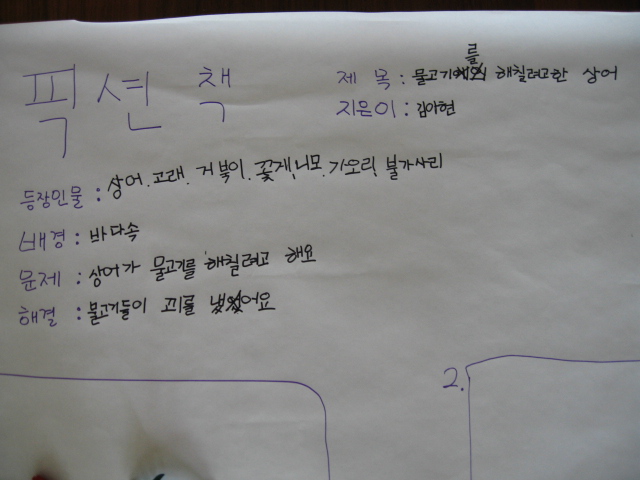 픽션 책
제 목 : 물고기를 해칠려고한 상어
지은이 : 김아현
등장인물 : 상어. 고래. 거북이. 꽃게, 니모. 가오리, 불가사리
배경 : 바다속
문제 : 상어가 물고기를 해칠려고 해요
해결 : 물고기들이 꾀를 냈어요
2.